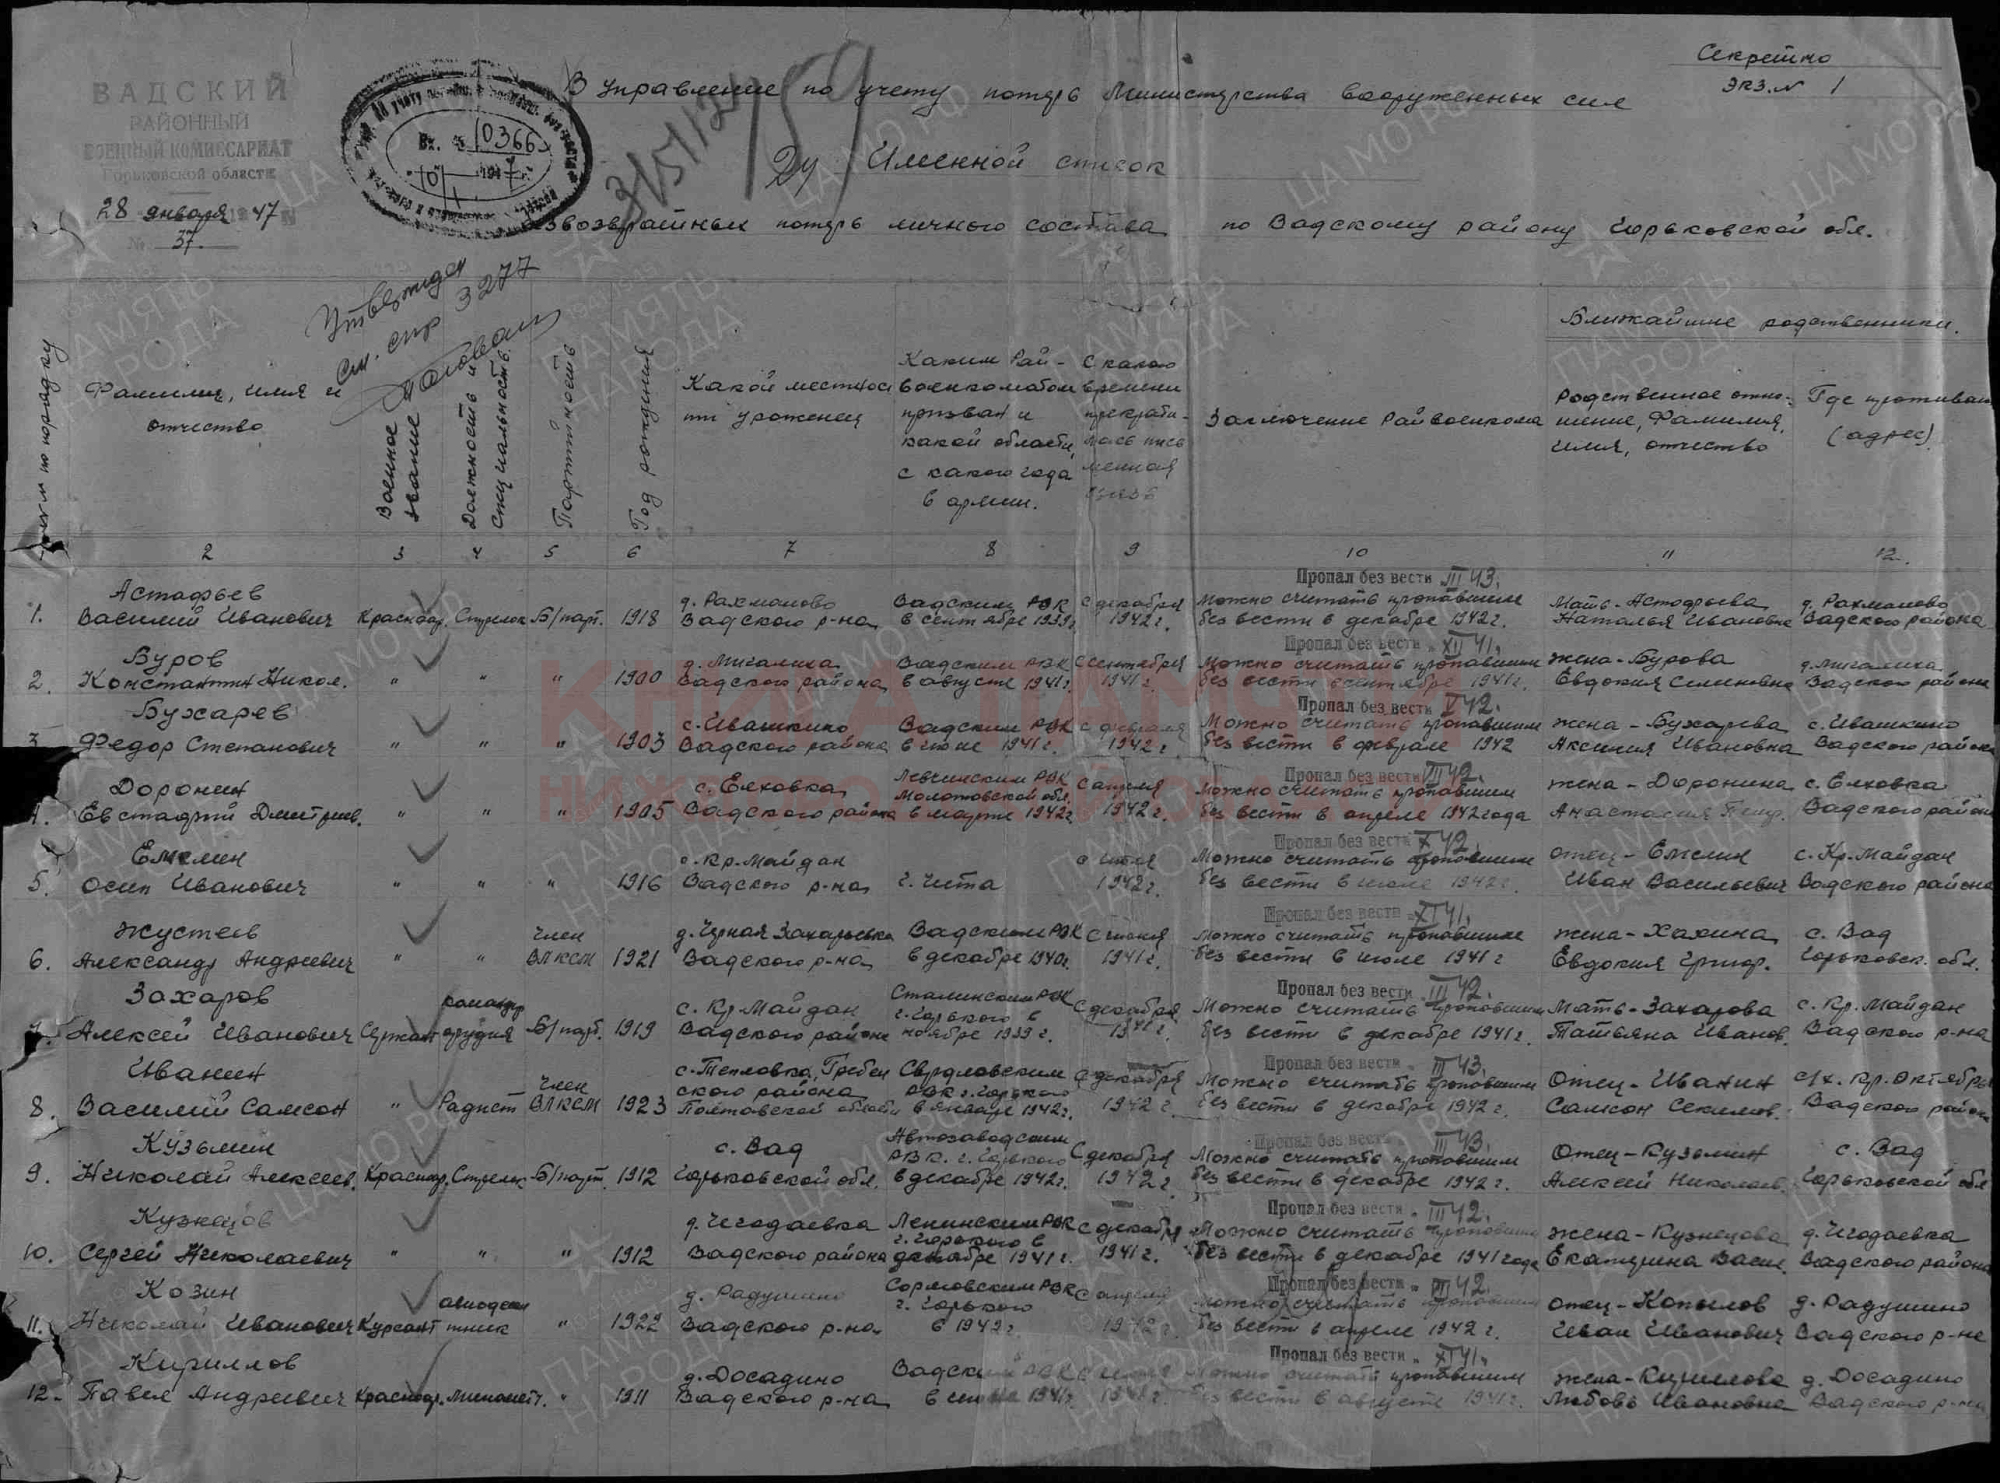 Секретно
Экз. № 1
ВАДСКИЙ
РАЙОННЫЙ
ВОЕННЫЙ КОМИССАРИАТ
Горьковской области
28 января 1947
№ 37.
Вх. 10366
1947 г.
В Управление по учету потерь Министерства вооруженных сил
Именной список
безвозвратных потерь личного состава по Вадскому району Горьковской обл.
Утвержден
см. стр 3277
№№ по порядку
Фамилия, имя и
отчество
Военное
звание
Должность и
специальность
Партийность
Год рождения
Какой местнос
ти уроженец
Каким Рай-
военкоматом
призван и
какой области,
с какого года
в армии.
С какого
времени
прекрати-
лась пись
менная
связь
Заключение Райвоенкома
Ближайшие родственники.
Родственное отно-
шение, Фамилия,
имя, отчество
Где проживают
(адрес)
2 3 4 5 6 7 8 9 10 11 12.
Пропал без вести III 43.
1. Астафьев
Василий Иванович Красноар. Стрелок Б/парт. 1918 д. Рахманово
Вадского р-на Вадским РВК
в сентябре 1939г. с декабря
1942 г. Можно считать пропавшим
без вести в декабре 1942 г. Мать-Астафьева
Наталья Ивановна д. Рахманово
Вадского района
Пропал без вести XII 41.
2. Буров
Константин Никол. " " " 1900 д. Мигалиха
Вадского района Вадским РВК
в августе 1941г. С сентября
1941 г. Можно считать пропавшим
без вести в сентябре 1941г. жена-Бурова
Евдокия Семеновна д. Мигалиха
Вадского района
Пропал без вести V 42.
3. Бухарев
Федор Степанович " " " 1903 с. Ивашкино
Вадского района Вадским РВК
в июне 1941 г. с февраля
1942 г. Можно считать пропавшим
без вести в феврале 1942 жена-Бухарева
Аксиния Ивановна с. Ивашкино
Вадского района
Пропал без вести VII 42.
4. Доронин
Евстафий Дмитриев. " " " 1905 с. Елховка
Вадского района РВК
Молотовской обл.
в марте 1942г. С апреля
1942 г. Можно считать пропавшим
без вести в апреле 1942 года жена-Доронина
Анастасия Петр. с. Елховка
Вадского района
Пропал без вести X 42.
5. Емелин
Осип Иванович " " " 1916 с. Кр. Майдан
Вадского р-на г. Чита с июля
1942 г. Можно считать пропавшим
без вести в июле 1942 г. отец-Емелин
Иван Васильевич с. Кр. Майдан
Вадского района
Пропал без вести XI 41.
6. Жустеев
Александр Андреевич " " член
ВЛКСМ 1921 д. Черная Захарьевка
Вадского р-на Вадским РВК
в декабре 1940г. С июня
1941 г. Можно считать пропавшим
без вести в июле 1941 г жена-Хахина
Евдокия Григор. с. Вад
Горьковск. обл.
Пропал без вести III 42.
7. Захаров
Алексей Иванович Сержант командир
орудия Б/парт. 1919 с. Кр. Майдан
Вадского района Сталинским РВК
г. Горького в
ноябре 1939 г. С декабря
1941 г. Можно считать пропавшим
без вести в декабре 1941 г. Мать-Захарова
Татьяна Иванов. с. Кр. Майдан
Вадского р-на
Пропал без вести III 43.
8. Иванин
Василий Самсон " Радист член
ВЛКСМ 1923 с. Тепловка, Гребен
ского района
Полтовской области Свердловским
РВК г. Горького
в январе 1942г. С декабря
1942 г Можно считать пропавшим
без вести в декабре 1942 г. Отец-Иванин
Самсон с/х. Кр. Октябрь
Вадского района
Пропал без вести III 43.
9. Кузьмин
Николай Алексеев. Красноар. Стрелок Б/парт. 1912 с. Вад
Горьковской обл. Автозаводским
РВК. г. Горького
в декабре 1942г. С декабря
1942 г Можно считать пропавшим
без вести в декабре 1942 г. Отец-Кузьмин
Алексей Николаев. с. Вад
Горьковской обл
Пропал без вести III 42.
10. Кузнецов
Сергей Николаевич " " " 1912 д. Чегодаевка
Вадского района Ленинским РВК
г. Горького в
декабре 1941 г. с декабря
1941 г. Можно считать пропавшим
без вести в декабре 1941 года жена-Кузнецова
Екатерина Васил. д. Чегодаевка
Вадского района
Пропал без вести VII 42.
11. Козин
Николай Иванович Курсант " 1922 д. Радушино
Вадского р-на Сормовским РВК
г. Горького
в 1942 г. С апреля
1942 г. Можно считать пропавшим
без вести в апреле 1942 г. отец-Копылов
Иван Иванович д. Радушино
Вадского р-на
Пропал без вести XI 41.
12. Кириллов
Павел Андреевич Красноар. Миномет. " 1911 д. Досадино
Вадского р-на Вадским РВК
в 1941г. 1941 г. Можно считать пропавшим
без вести в августе 1941 г. жена-Кириллова
Любовь Ивановна д. Досадино
Вадского р-на
КНИГА ПАМЯТИ
ПАМЯТЬ НАРОДА
ЦАМО РФ